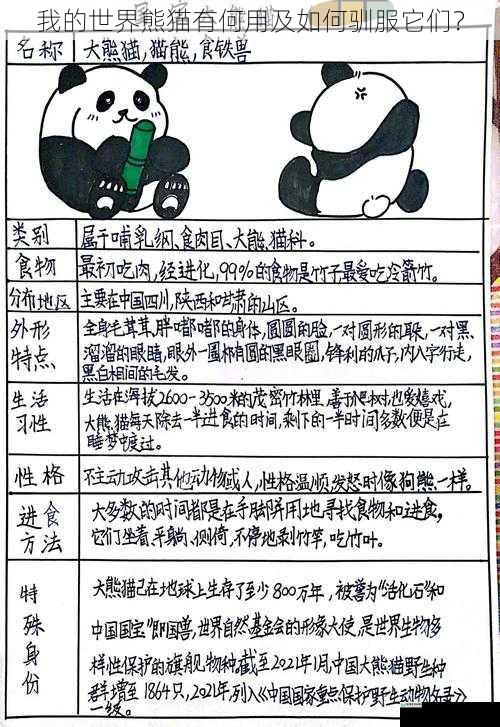 我的世界熊猫有何用及如何驯服它们?
名称 大熊猫,猫熊,食铁兽
类别 属于哺乳纲、食肉目、大熊猫科。
食物 最初吃肉,经进化,99%的食物是竹子最爱吃冷箭竹。
分布地区 主要在中国四川,陕西和甘肃的山区。
外形特点
全身毛茸茸,胖嘟嘟的身体,圆圆的脸,一对圆形的耳朵,一对黑
溜溜的眼睛,眼外一圈椭圆的黑眼圈,锋利的爪子,内八字行走,
黑白相间的毛发。
生活习性
生活在海拔2600-3500米的茂密竹林里,善于爬树,也爱嬉戏,
大熊猫每天除去一半进食的时间,剩下的一半时间多数便是在
睡梦中度过。
性格 不主动攻击其他动物或人,性格温顺,发怒时像狗熊一样。
进食方法
大多数的时间都是在手脚并用地寻找食物和进食。
它们坐着、平躺、侧倚,不停地剥竹竿,吃竹叶。
特殊身份
大熊猫已在地球上生存了至少800万年,被誉为“活化石”和
“中国国宝”即国兽,世界自然基金会的形象大使,是世界生物多
样性保护的旗舰物种,截至2021年1月,中国大熊猫野生种
群增至1864只,2021年,列入《中国国家重点保护野生动物名录》
一级。